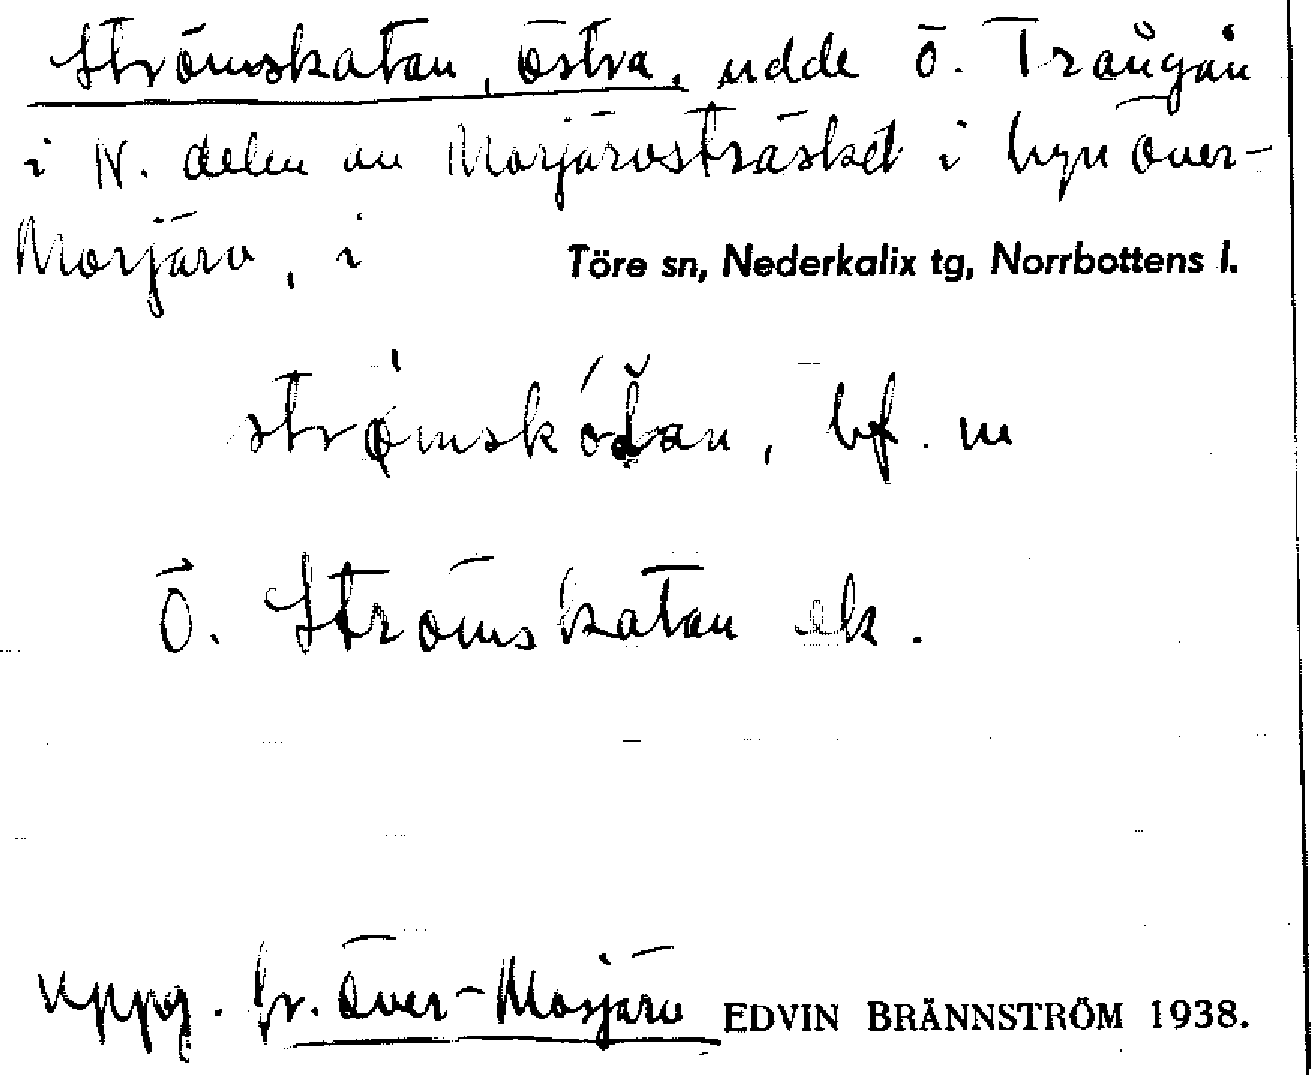 Strömskatan, östra, udde ö. Trångån
i N. delen av Morjärvsträsket i byn Över-
Morjärv, i Töre sn, Nederkalix tg, Norrbottens l.
bf. m
Ö. Strömskatan ek.
Uppg. fr. Över-Morjärv EDVIN BRÄNNSTRÖM 1938.